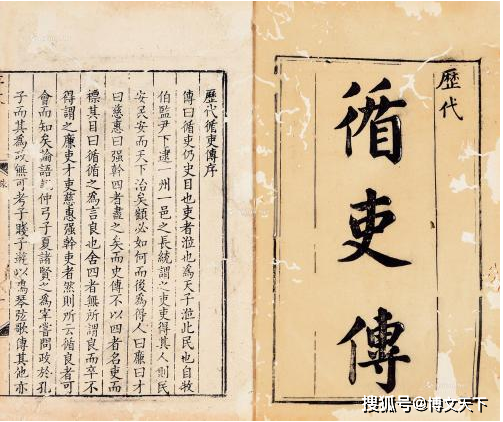 歷代
循吏傳
歷代循吏傳序
傳曰循吏仍史目也吏者涖也為天子涖此民也自牧
伯監尹下逮一州一邑之長統謂之吏吏得其人則民
安民安而天下治矣顧必如何而後為得人曰廉曰才
曰慈惠曰强幹四者盡之矣而史傳不以四者名吏而
標其目曰循循之為言良也舍四者無所謂良而卒不
得謂之廉吏才吏慈惠强幹吏者然則所云循良者可
會而知矣論語記仲弓子夏諸賢之為宰嘗問政於孔
子而其為政無可考子賤子游以鳴琴弦歌傳其他亦
搜狐号@博文天下